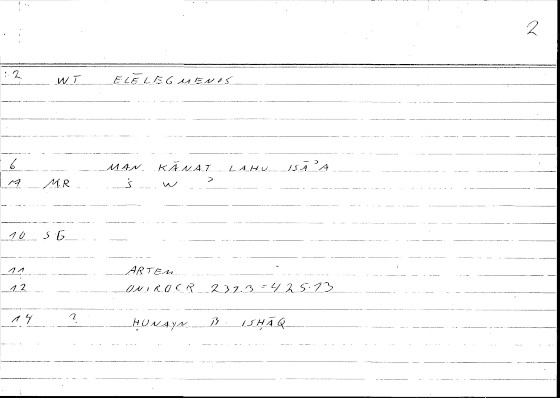 2
:2 WT ELĒLEGMENOS
6 MAN KĀNAT LAHU ISĀʾA
19 MR Š W ʾ
10 SG
11 ARTEM
12 ONIROCR 237.3 = 425.13
14 ? ḤUNAYN B ISḤĀQ